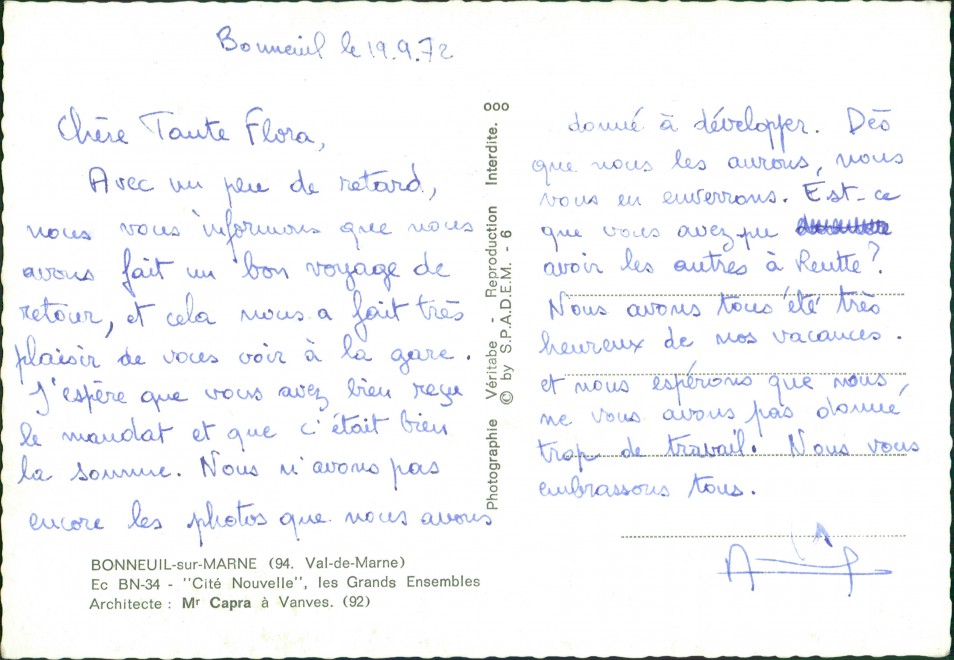 Bonneuil le 19.9.72
Chère Tante Flora,
Avec un peu de retard,
nous vous informons que nous
avons fait un bon voyage de
retour, et cela nous a fait très
plaisir de vous voir à la gare.
J'espère que vous avez bien reçu
le mandat et que c'était bien
la somme. Nous n'avons pas
encore les photos que nous avons
BONNEUIL-sur-MARNE (94. Val-de-Marne)
Ec BN-34 - "Cité Nouvelle", les Grands Ensembles
Architecte : Mr Capra à Vanves. (92)
Photographie Véritabe - Reproduction Interdite. ooo
© by S.P.A.D.E.M. - 6
donné à développer. Dès
que nous les aurons, nous
vous en enverrons. Est-ce
que vous avez pu
avoir les autres à Reutte?
Nous avons tous été très
heureux de nos vacances.
et nous espérons que nous,
ne vous avons pas donné
trop de travail. Nous vous
embrassons tous.